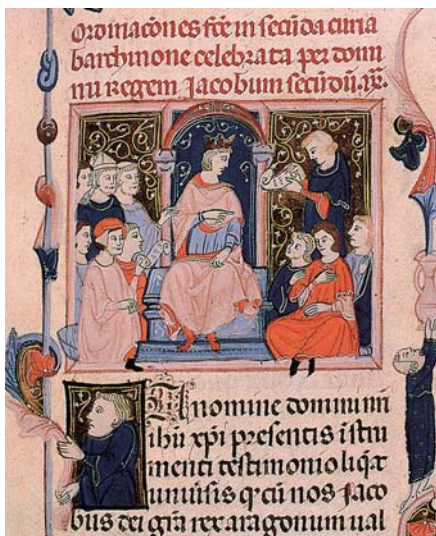 Ordinacōnes fcē in secūda curia
barchinone celebrata per domi
nū regem Jacobum secūdū. rx.
In nomine domini nri
ihū xpī presentis istru
menti testimonio liqat
uniūsis qr cū nos Jaco
bus dei grā rex aragonum ual